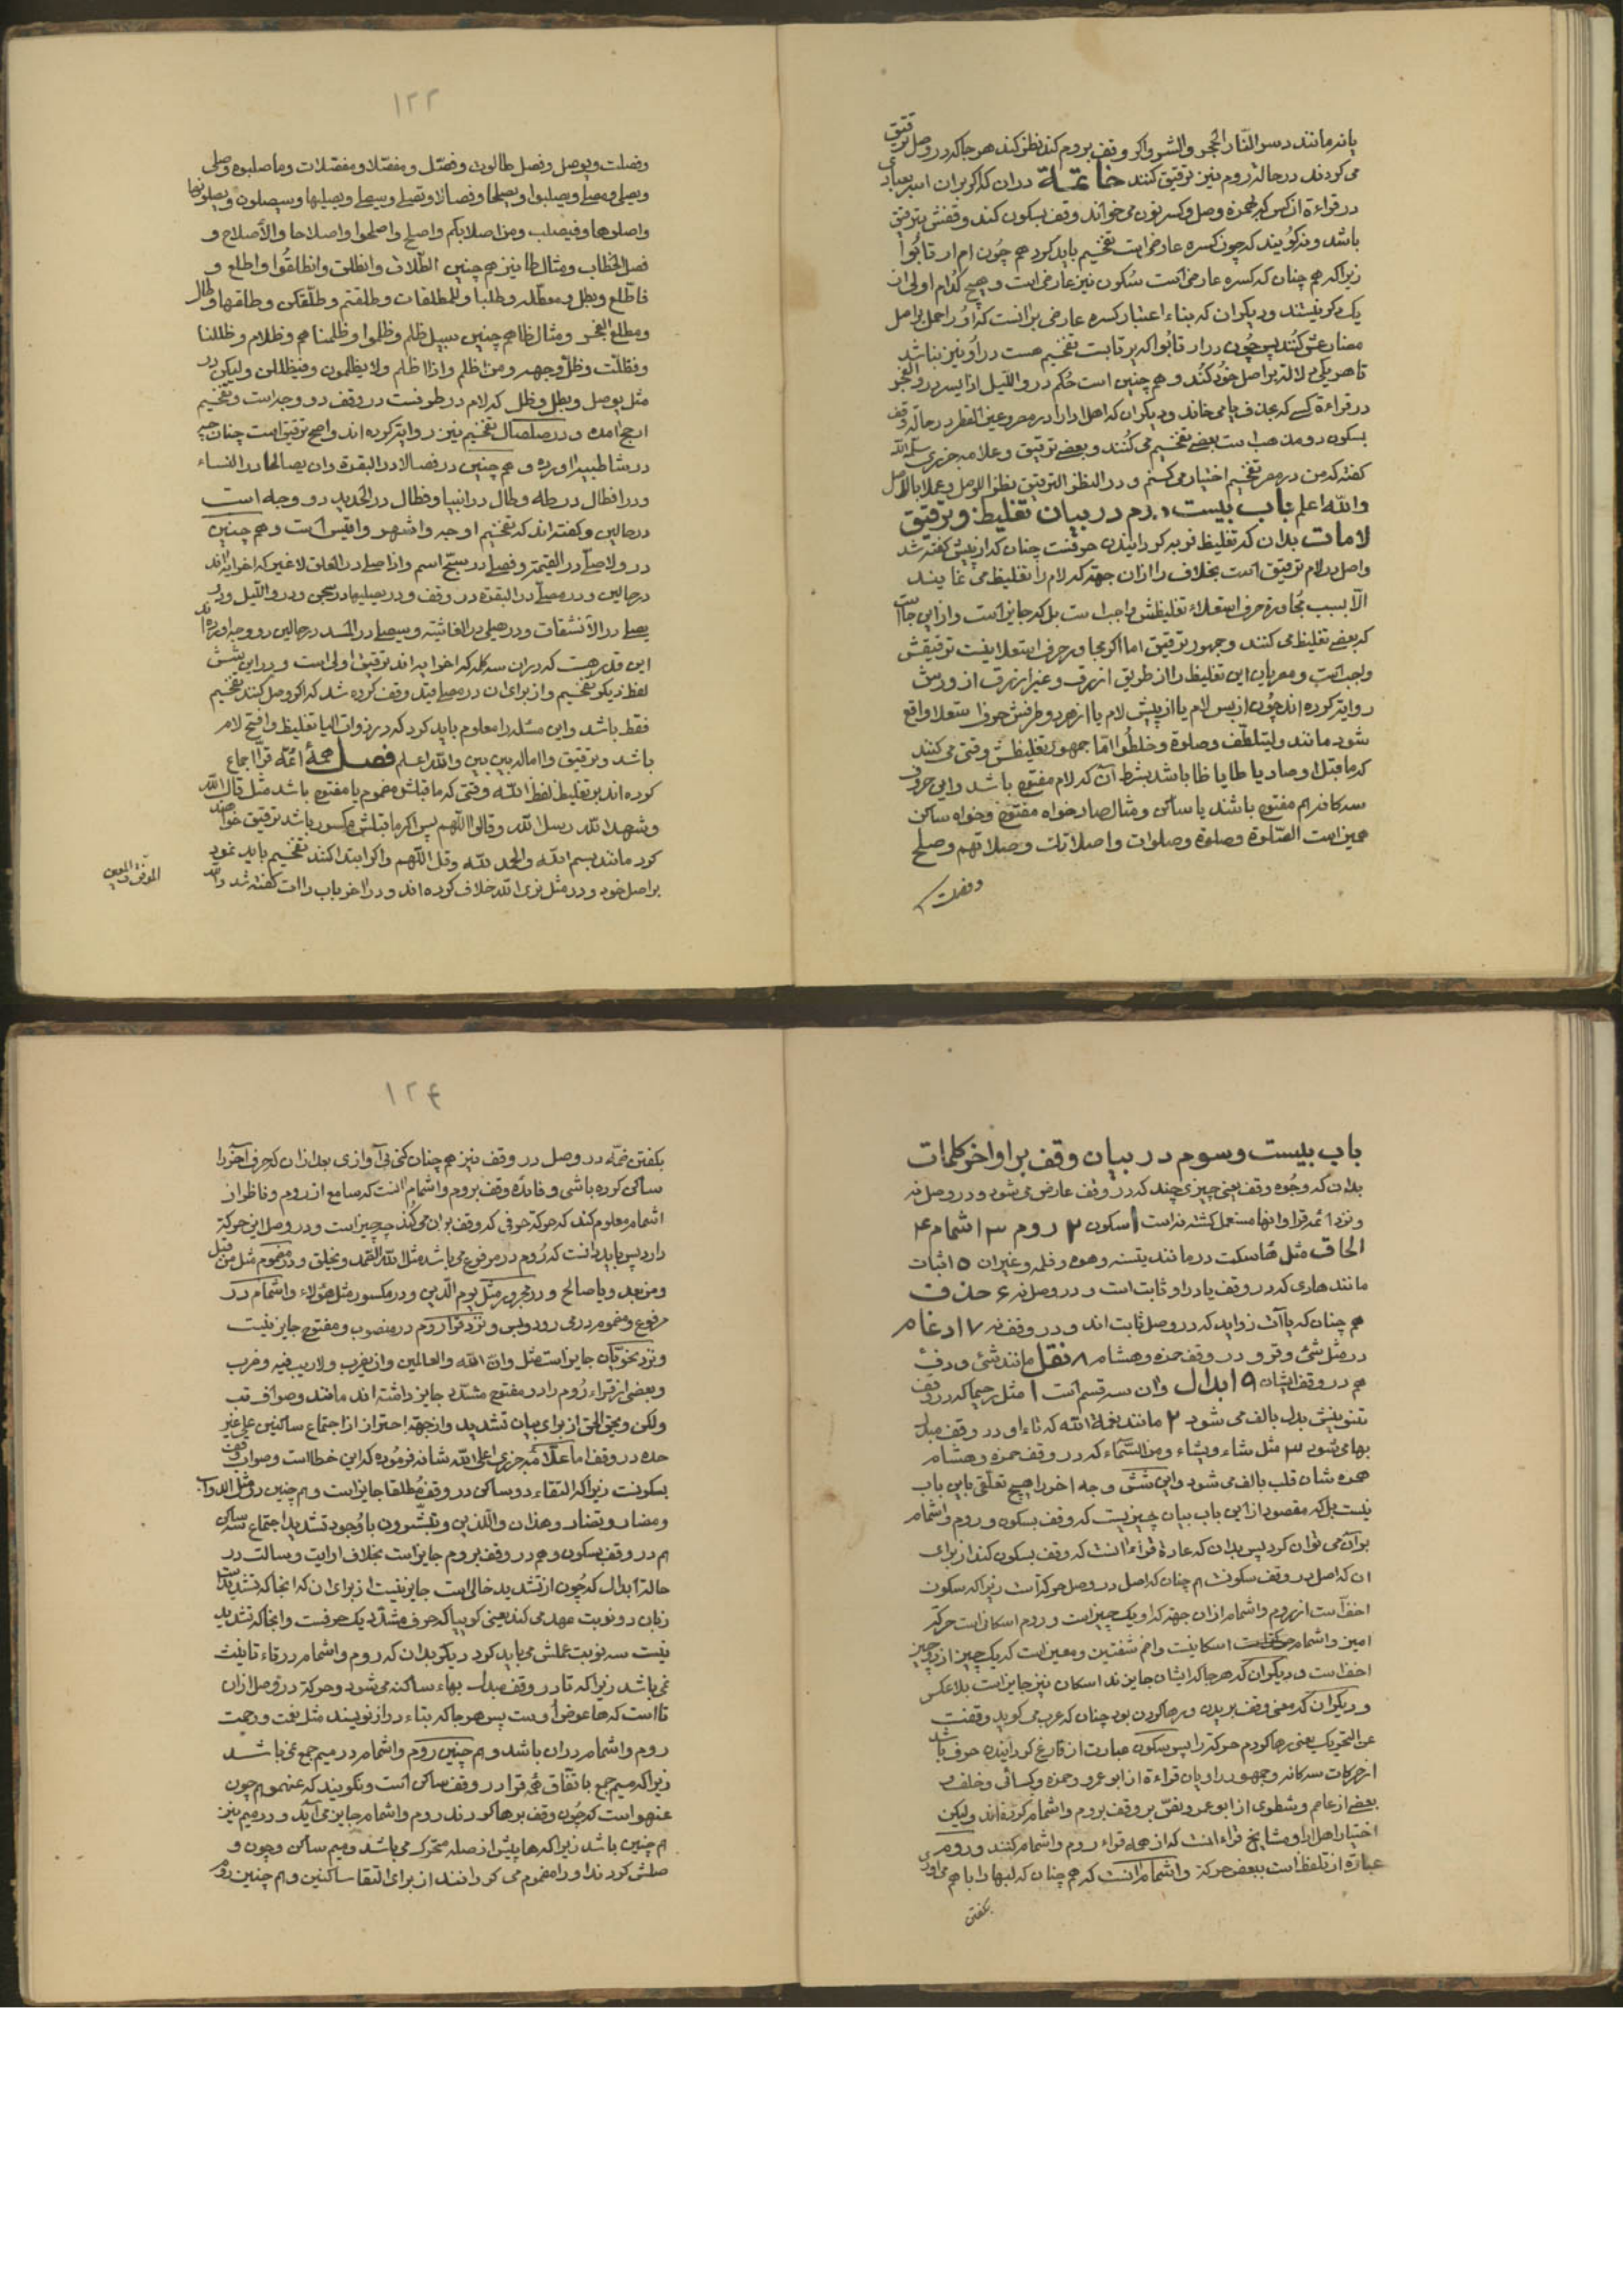 یا نه مانند دسر النّار الحجر والشرر واکر وقف بروم کند نظر کند هر جا که در وصل ترقیق
می کردند در حالة روم نیز ترقیق کنند خاتمة در ان که اکر بر ان اسر بعبادی
در قراءة ان کس که بهمزة وصل وکسر نون می خواند وقف بسکون کند وقفش بترقیق
باشد ونه کویند که چون کسره عارضی است تفخیم باید کرد هم چون ام ارتابوا
زیرا که هم چنان که کسره عارضی است سکون نیز عارضی است و هیچ کدام اولی از
یک دیکر نیستند ودیکر ان که بناء اعتبار کسره عارضی بر انست که او را حمل بر اصل
مضارعش کنند پس چون در ارتابوا که یرتابست تفخیم هست در او نیز بناشد
تا هر یکی دلالة بر اصل خود کند و هم چنین است حکم در واللیل اذا یسر در والفجر
در قراءة کسی که بحذف یا می خواند ودیکر ان که اهل ادا را در مصر وعین القطر در حالة وقف
بسکون دو مذهب است بعضی تفخیم می کنند و بعضی ترقیق وعلامه جزری سلمه الله
کفته که من در مصر تفخیم اختیار می کنم و در القطر الترقیق نظرا للوصل وعملا بالاصل
والله اعلم باب بیست ودوم در بیان تغلیظ وترقیق
لامات بدان که تغلیظ فربه کردانیدن حرفست چنان که از پیش کفته شد
واصل در لام ترقیق است بخلاف را از ان جهة که لام را تغلیظ می نمایند
الا بسبب مجاورة حرف استعلاء تغلیظش واجب است بل که جایز است واز این جا است
که بعضی تغلیظ می کنند و جمهور ترقیق اما اکر مجاور حرف استعلا نیست ترقیقش
واجب است ومصریان این تغلیظ را از طریق ازرق وغیر ازرق از ورش
روایة کرده اند چون از پس لام یا از پیش لام یا از هر دو طرفش حرف استعلا واقع
شود مانند ولیتلطف وصلوة وخلطوا امّا جمهور تغلیظش وقتی می کنند
که ما قبل او صاد یا طا یا ظا باشد بشرط آن که لام مفتوح باشد واین حروف
سه کانه هم مفتوح باشند یا ساکن ومثال صاد خواه مفتوح وخواه ساکن
همین است الصّلوة وصلوة وصلوات واصلاتك وصلاتهم وصلح
وفصلت
۱۲۳
وفصلت ویوصل وفصل طالوت وفصّل ومفصّلا ومفصّلات وما صلبوه وصلی
واصلوها وفیصلب ومن اصلابکم واصلح واصلحوا واصلاحا والأصلاح و
فصل الخطاب ومثال طا نیز هم چنین الطّلاق وانطلق وانطلقوا واطلع و
فاطّلع وبطل ومعطّلة وطلبا والمطلقات وطلقتم وطلّقکن وطلقها وطال
ومطلع الفجر ومثال ظا هم چنین بیل ظلم وظلموا وظلمنا هم وظلام وظللنا
وفظلّت وظلّ وجهه ومن اظلم واذا اظلم ولا یظلمون وفیظللن ولیکن در
مثل یوصل وبطل وظل که لام در طرفست در وقف دو وجه است وتفخیم
ارجح امده ودر صلصال تفخیم نیز روایة کرده اند واصح ترقیق است چنان چه
در شاطبیه اورده وهم چنین در فصالا در البقرة وان یصالحا در النساء
ودر افطال در طه وطال در انبیا وفطال در الحدید دو وجه است
در حالین وکفته اند که تفخیم اوجه واشهر واقیس است وهم چنین
در ولا صلّی در القیمة وفصلّی در سبّح اسم واذا صلّی در العلق لا غیر که اخر ایة اند
در حالین ودر مصلّی در البقرة در وقف ودر یصلیها در سبحی ودر واللیل ودر
یصلی در الأنشقاق ودر تصلی در الغاشیة وسیصلی در المسد در حالین دو وجه اورده اند
این قدر هست که در ان سه کله که اخر ایه اند ترقیق اولی است ودر این شش
لفظ دیکر تفخیم واز برای ان در مصلی قید وقف کرده شد که اکر وصل کنند تفخیم
فقط باشد واین مسئله را معلوم باید کرد که در ذوات الیا تغلیظ وا فتح لام
باشد وترقیق وا اماله بین بین والله اعلم فصل همهٔ ائمّه قرّا اجماع
کرده اند بر تغلیظ لفظ الله وقتی که ما قبلش مضموم یا مفتوح باشد مثل قال الله
وشهد الله رسل الله وقالوا اللهم پس اکر ما قبلش مکسور باشد ترقیق خواهند
کرد مانند بسم الله والحمد لله وقل اللهم واکر ابتدا کنند تفخیم باید نمود
بر اصل خود ودر مثل نری الله خلاف کرده اند ودر اخر باب راات کفته شد والله
الموفق والمعین
باب بیست وسوم در بیان وقف بر اواخر کلمات
بدان که وجوه وقف یعنی چیزی چند که در وقف عارض می شود ودر وصل نه
ونزد ائمه قرا وانها مستعمل کشته نه است ۱ سکون ۲ روم ۳ اشمام ۴
الحاق مثل هاء سکت در مانند یتسنه وهوه وفلمه وغیر ان ۵ اثبات
مانند هادی که در وقف یا در او ثابت است و در وصل نه ۶ حذف
هم چنان که یاآت زواید که در وصل ثابت اند ودر وقف نه ۷ ادغام
در مثل شئ وقرو در وقف حمزه وهشام ۸ نقل مانند شئ ودفء
هم در وقف ایشان ۹ ابدال وان سه قسم است ۱ مثل رحیما که در وقف
تنوینش بدل بالف می شود ۲ مانند نعمة الله که تاء او در وقف مبدل
بها می شود ۳ مثل شاء ویشاء ومن السّماء که در وقف حمزه وهشام
همزه شان قلب بالف می شود واین شش وجه اخر را هیچ تعلّقی باین باب
نیست بل که مقصود از این باب بیان چیزیست که وقف بسکون وروم واشمام
بر آن می توان کرد پس بدان که عادة قراء انست که وقف بسکون کنند از برای
ان که اصل در وقف سکونست هم چنان که اصل در وصل حرکة است زیرا که سکون
اخف است از روم واشمام از ان جهة که او یک چیز است وروم اسکان است حرکة
امیز واشمام حرکة است اسکانیست وضم شفتین ومعین است که یک چیز از دو چیز
اخف است ودیکر ان که هر جا که ایشان جایزند اسکان نیز جایز است بلا عکس
ودیکر ان که معنی وقف بریدن ورها کردن بود چنان که عرب می کوید وقفت
عن التحریک یعنی رها کردم حرکة را پس سکون عبارت از فارغ کردانیدن حرف باشد
از حرکات سه کانه وجمهور راویان قراءة از ابو عمرو وحمزه وکسائی وخلف و
بعضی از عاصم وشطوی از ابو عمرو نصّ بر وقف بروم واشمام کرده اند ولیکن
اختیار اهل ادا ومشایخ قراء انست که از همه قراء روم واشمام کنند وروم
عبارة از تلفظ است ببعض حرکة واشمام انست که هم چنان که لبها را با هم می اوری
بکفتن
۱۲۴
بکفتن ضمّه در وصل در وقف نیز هم چنان کنی بی آوازی بعد از ان که حرف آخر را
ساکن کرده باشی وفائده وقف بروم واشمام انست که سامع از روم وناظر از
اشمام معلوم کند که حرکة حرفی که وقف بر ان می کند چه چیز است ودر وصل این حرکة
دارد پس باید دانست که روم در مرفوع می باشد مثل الله الصّمد ویخلق ودر مضموم مثل من قبل
ومن بعد ویا صالح ودر مجرور مثل یوم الدّین ودر مکسور مثل هؤلاء واشمام در
مرفوع ومضموم در می رود وبس ونزد قرا روم در منصوب ومفتوح جایز نیست
ونزد نحویّان جایز است مثل وانّ الله والعالمین وان یضرب ولا ریب فیه وضرب
وبعضی از قراء روم را در مفتوح مشدّد جایز داشته اند مانند وصوافّ تب
ولکن ویحق الحق از برای بیان تشدید واز جهة احتراز از اجتماع ساکنین علی غیر
حده در وقف اما علّامه جزری اعلی الله شانه فرموده که این خطا است وصواب وقف
بسکونست زیرا که التقاء دو ساکن در وقف مطلقا جایز است وهم چنین در مثل الدوابّ
ومضار وتضار وهذان واللّذین وتبشّرون با وجود تشدید اجتماع سه ساکن
هم در وقف بسکون وهم در وقف بروم جایز است بخلاف ارایت وسالت در
حالة ابدال که چون از تشدید خالی است جایز نیست از برای ان که انجا که تشدید است
زبان دو نوبت عهد می کند یعنی کوییا که حرف مشدّد یک حرفست وانجا که تشدید
نیست سه نوبت عملش می باید کرد دیکر بدان که روم واشمام در تاء تانیث
نمی باشد زیرا که تا در وقف مبدل بهاء ساکنه می شود وحرکة در وصل از ان
تا است که ها عوض اوست پس هر جا که بتاء دراز نویسند مثل نعمت ورحمت
روم واشمام در ان باشد وهم چنین روم واشمام در میم جمع نمی باشد
زیرا که میم جمع باتّفاق همه قرا در وقف ساکن است ونکویند که عنهمو هم چون
عنهو است که چون وقف برها کردند روم واشمام جایز می آید ودر میم نیز
هم چنین باشد زیرا که ها پیش از صله متحرک می باشد ومیم ساکن وچون و
صلش کردند او را مضموم می کردانند از برای التقا ساکنین وهم چنین روم